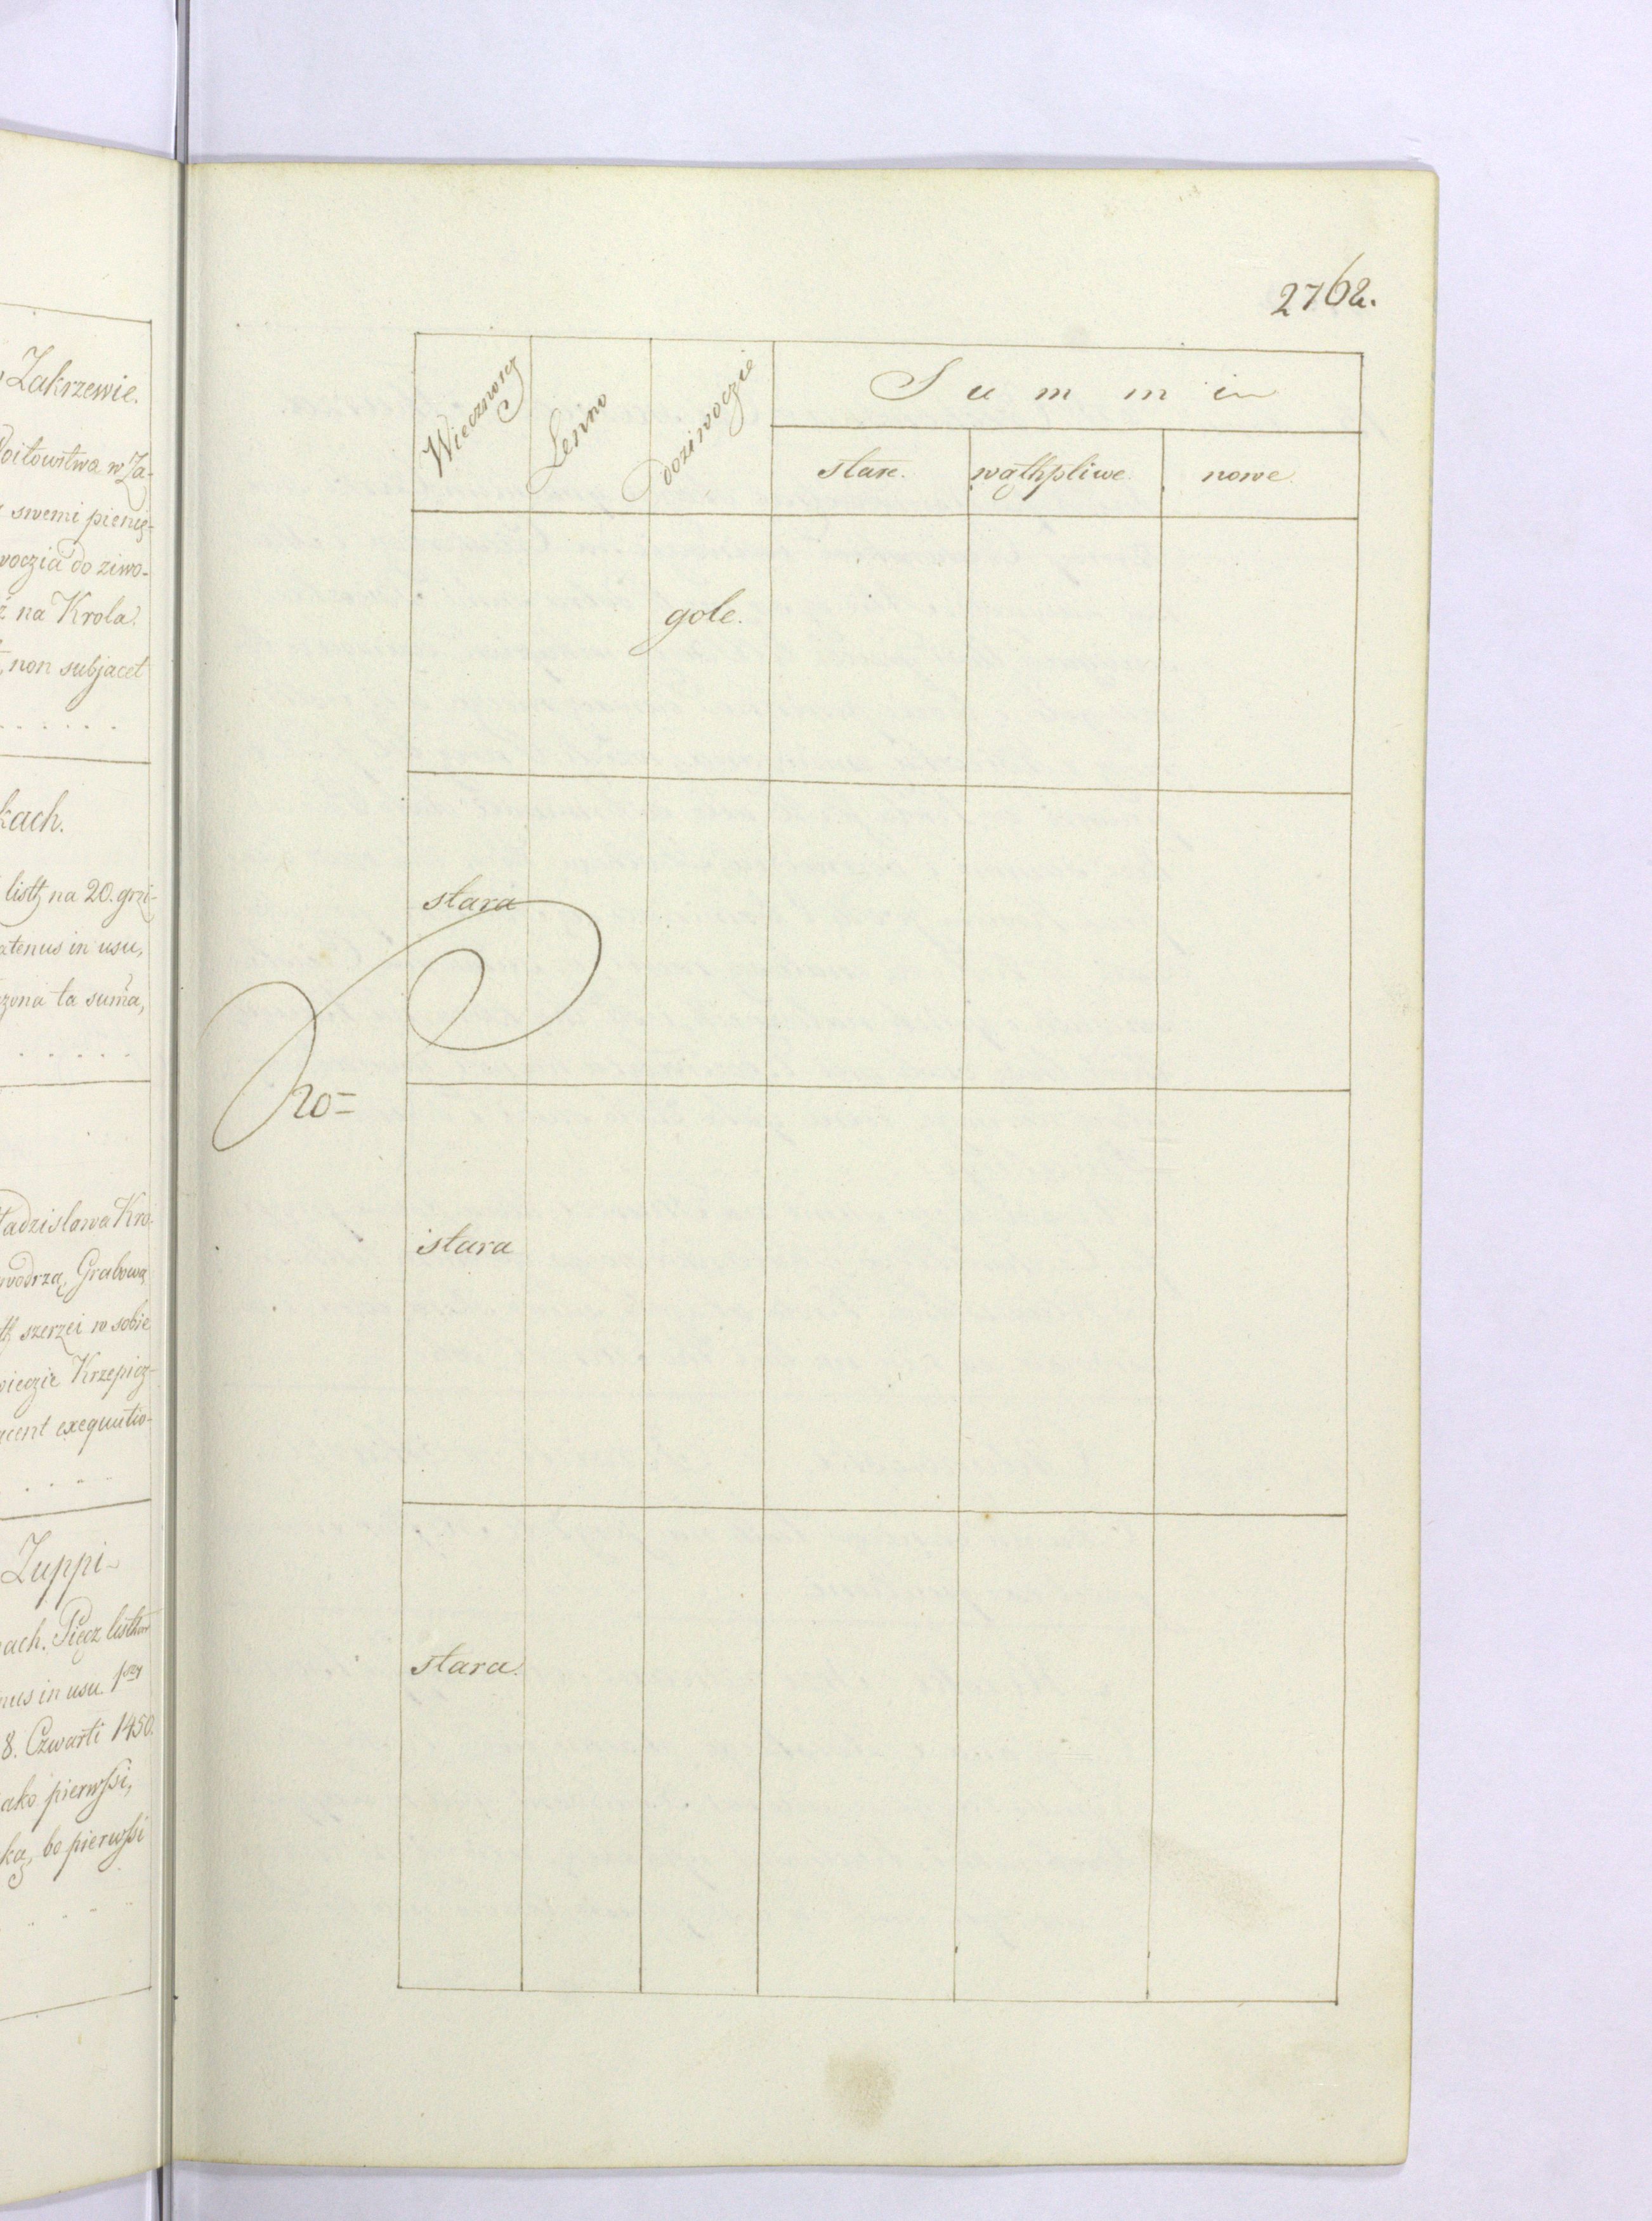 Zakrzewie.
woitowstwa w Za-
swemi pienię-
woczia do ziwo-
na Krola.
non subjacet
kach.
listh na 20. grzi-
atenus in usu,
zona ta suma,
ładzisłowa Kro-
wodrzą, Grabową
szerzei w sobie
Krzepicz-
exequutio-
Zuppi-
ach. Pięcz listhow
in usu. 1szy
8. Czwarti 1450.
ako pierwssi,
ką, bo pierwssi
2762.
Wiecznoscz Lenno Doziwoczie Summ
stare. wąthpliwe. nowe.
gole.
stara
20=
stara
stara.